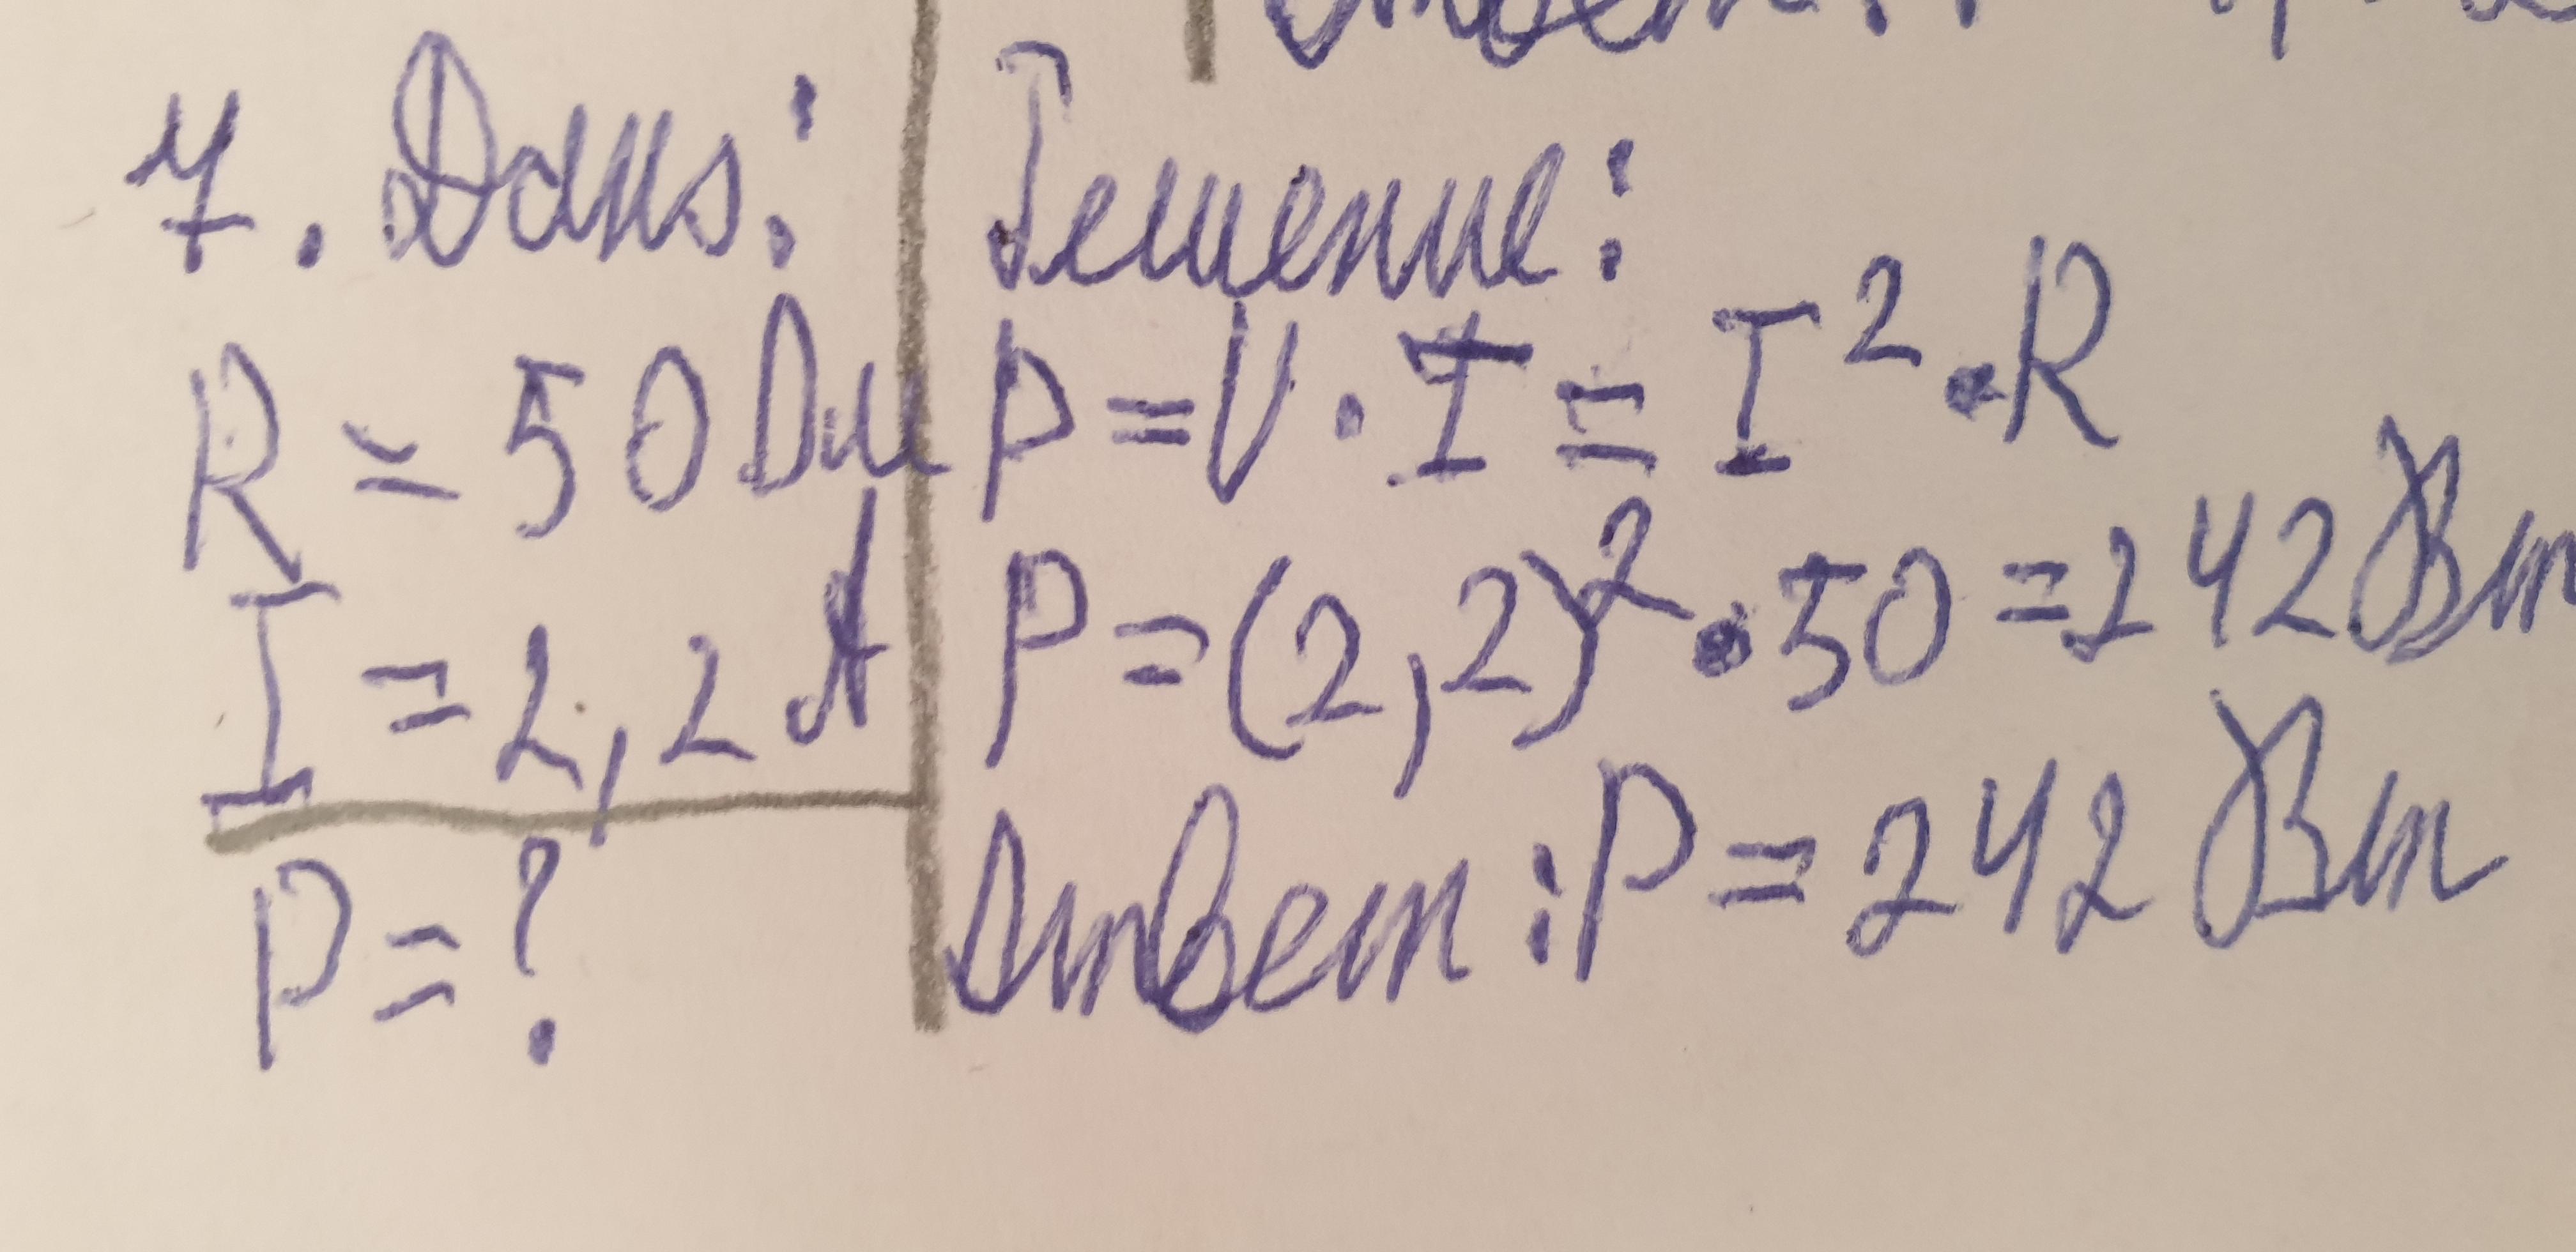 7. Дано:
R = 50 Ом
I = 2,2 А
P = ?
Решение:
P = U · I = I² · R
P = (2,2)² · 50 = 242 Вт
Ответ: P = 242 Вт